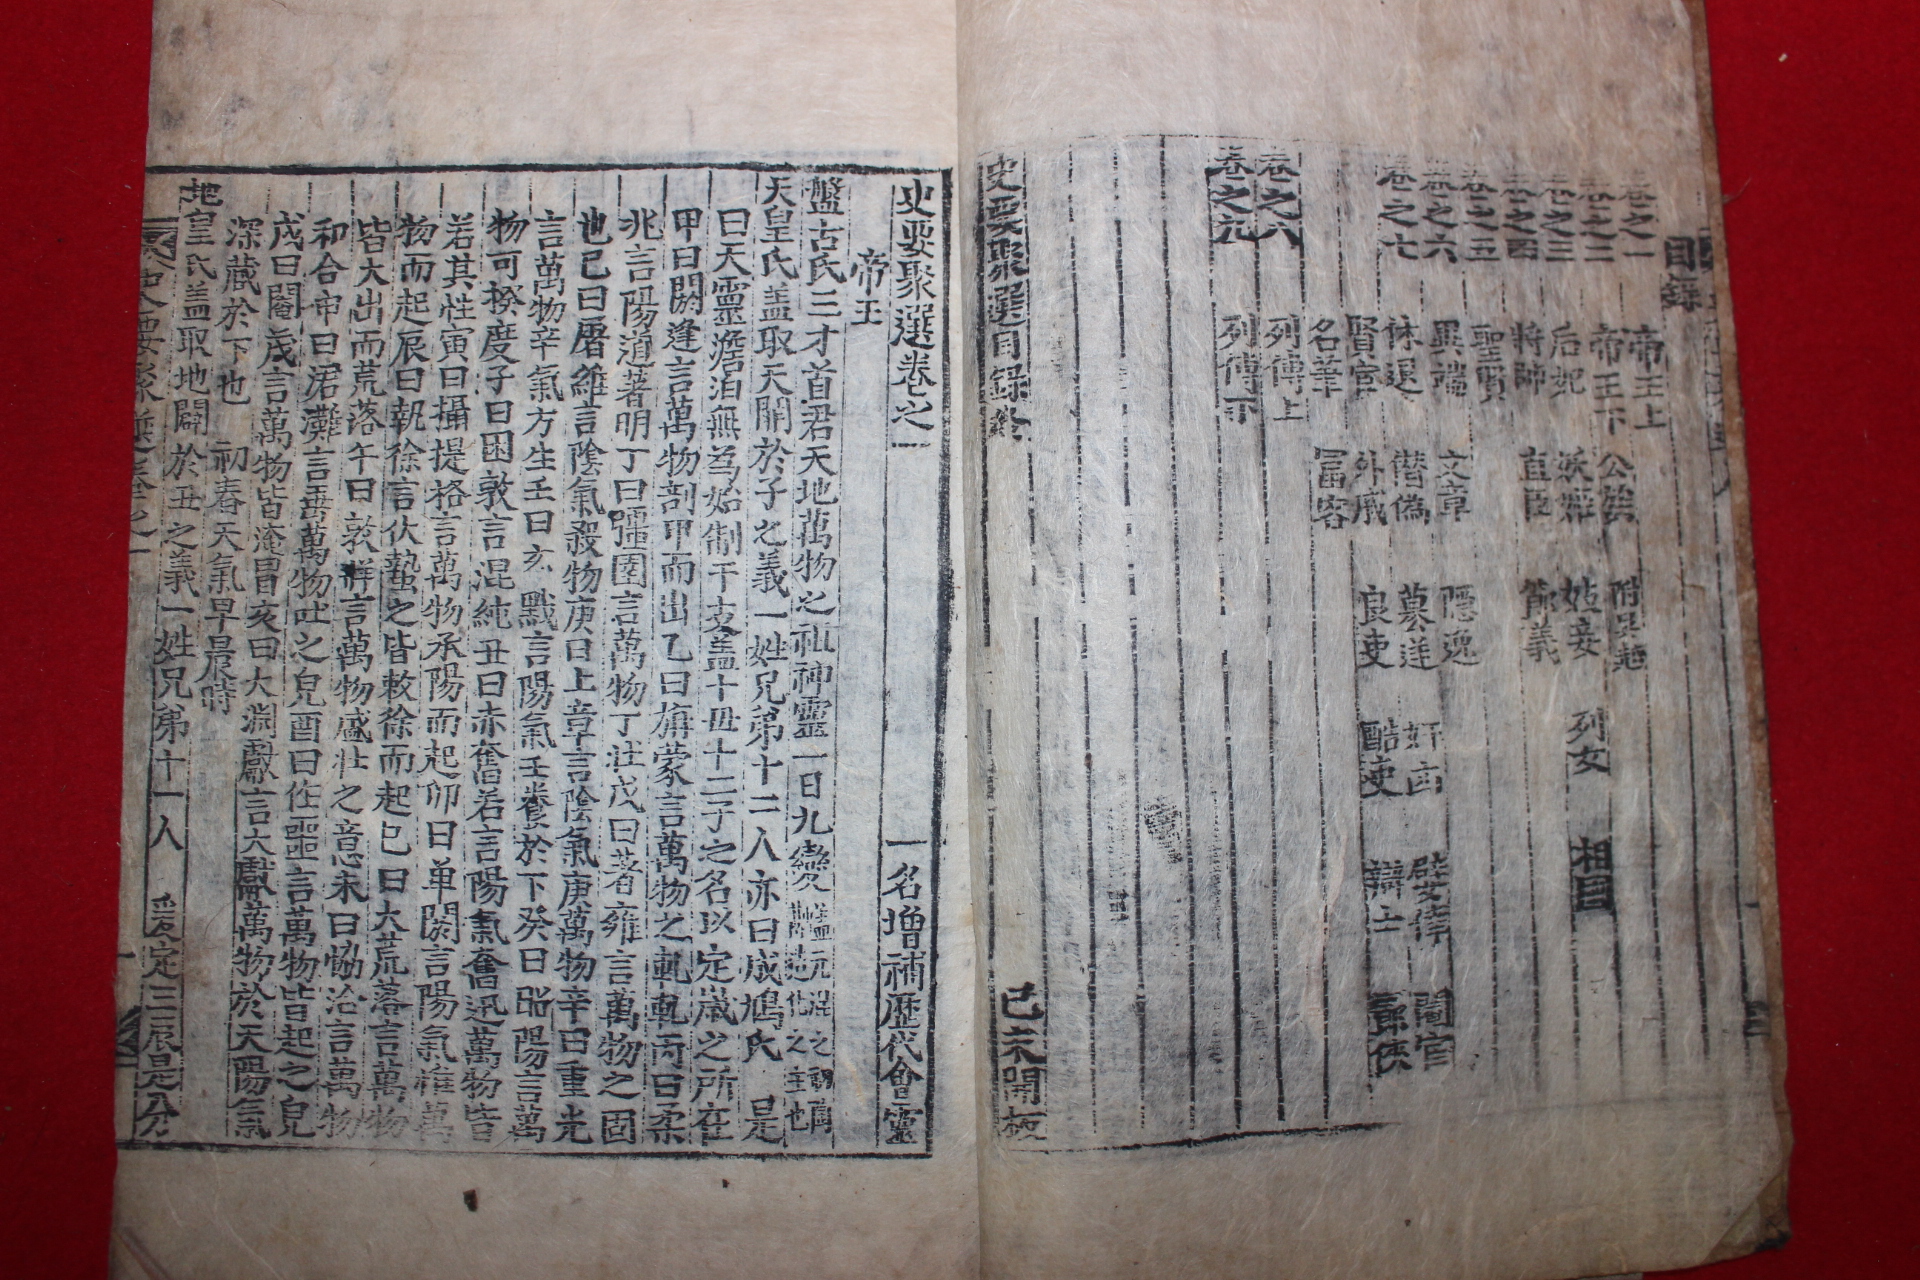 目錄
卷之一 帝王上
卷之二 帝王下 公族 附吳起
卷之三 后妃 妖姬 妓妾 列女 相國
卷之四 將帥 直臣 節義
卷之五 聖賢
卷之六 異端 文章 隱逸
卷之七 休退 僭僞 纂逆 奸凶 嬖倖 閹宦
賢宦 外戚 良吏 酷吏 辯士 游俠
名筆 富客
卷之八 列傳上
卷之九 列傳下
史要聚選目錄終 己未開板
史要聚選卷之一 一名增補歷代會靈
帝王
盤古氏三才首君天地萬物之祖神靈一日九變盖元混之初爲造化之主也
天皇氏盖取天開於子之義一姓兄弟十二人亦曰成鳩氏 是
曰天靈澹泊無爲始制干支盖十母十二子之名以定歲之所在
甲曰閼逢言萬物剖甲而出乙曰旃蒙言萬物之軋軋丙曰柔
兆言陽道著明丁曰彊圉言萬物丁壯戊曰著雍言萬物之固
也己曰屠維言陰氣殺物庚曰上章言陰氣庚萬物辛曰重光
言萬物辛氣方生壬曰玄黓言陽氣壬養於下癸曰昭陽言萬
物可揆度子曰困敦言混純丑曰赤奮若言陽氣奮迅萬物皆
若其性寅曰攝提格言萬物承陽而起卯曰单閼言陽氣推萬
物而起辰曰執徐言伏蟄之皆敕徐而起巳曰大荒落言萬物
皆大出而荒落午曰敦牂言萬物盛壯之意未曰協洽言萬物
和合申曰涒灘言吞萬物吐之皃酉曰作噩言萬物皆起之皃
戌曰閹茂言萬物皆淹冒亥曰大淵獻言大獻萬物於天陽氣
深藏於下也 初春天氣早晨時
地皇氏盖取地闢於丑之義一姓兄弟十一人 爰定三辰是分
史要聚選卷之一 一